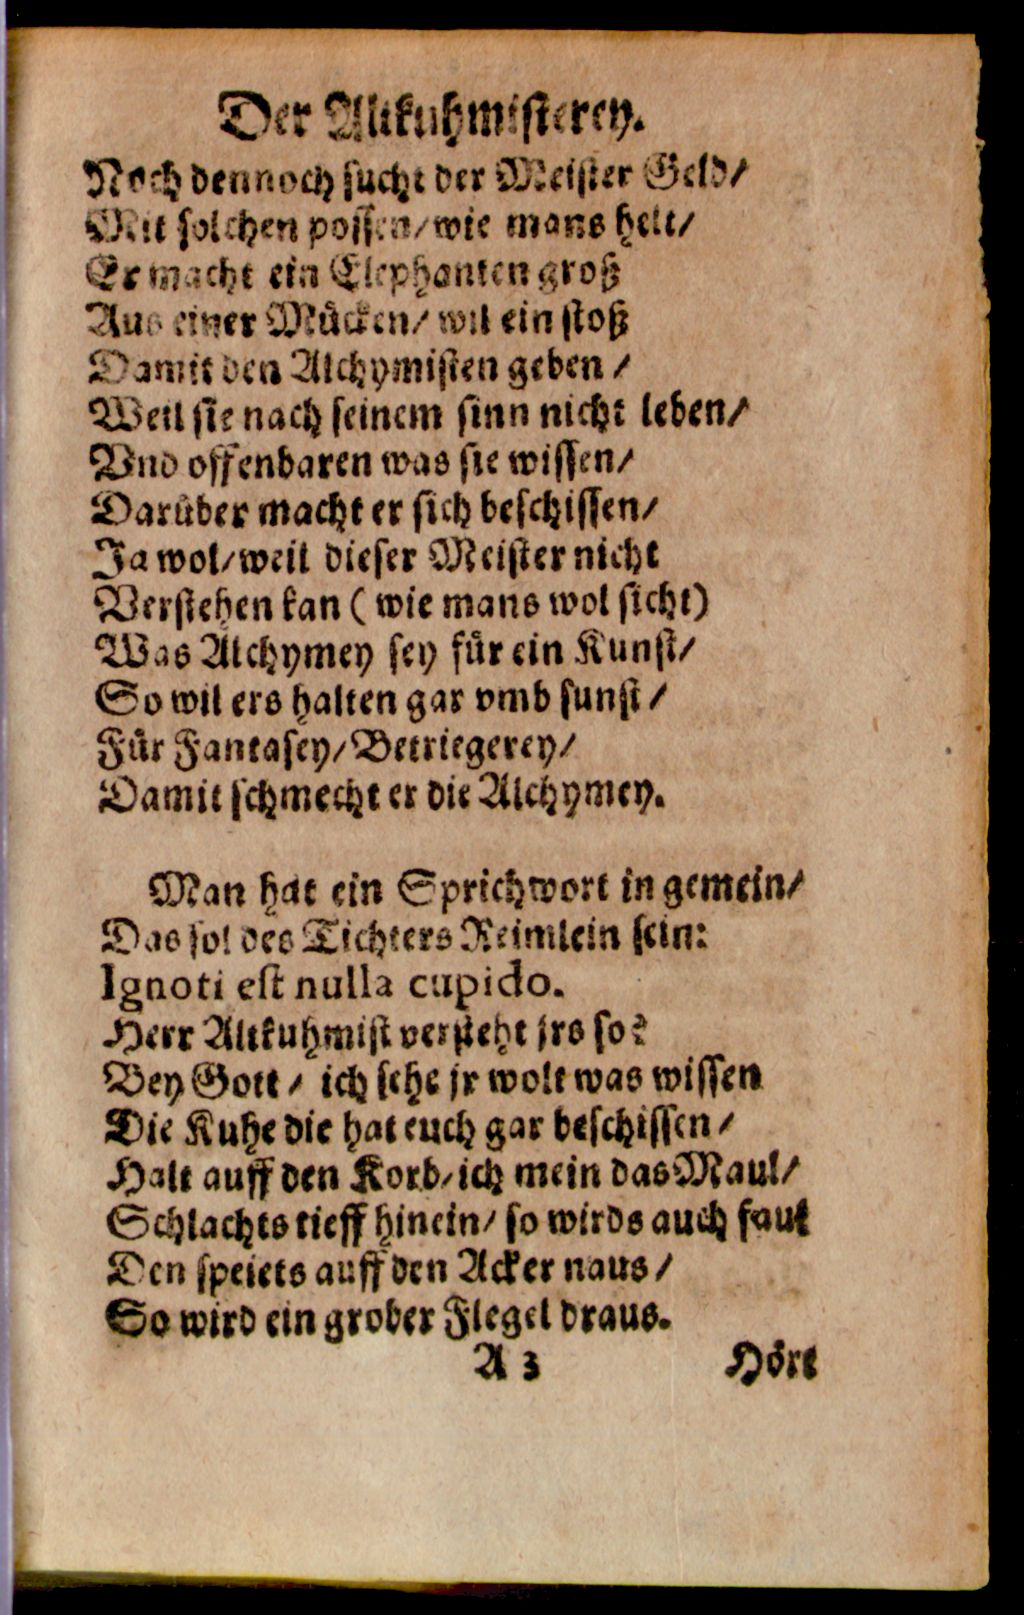 Der Altkuhmisterey.
Noch dennoch sucht der Meister Geld/
Mit solchen possen/wie mans helt/
Er macht ein Elephanten groß
Aus einer Mücken/ wil ein stoß
Damit den Alchymisten geben /
Weil sie nach seinem sinn nicht leben/
Vnd offenbaren was sie wissen/
Darüber macht er sich beschissen/
Ja wol/weil dieser Meister nicht
Verstehen kan ( wie mans wol sicht)
Was Alchymey sey für ein Kunst/
So wil ers halten gar vmb sunst /
Für Fantasey/Betriegerey/
Damit schmecht er die Alchymey.
Man hat ein Sprichwort in gemein/
Das sol des Tichters Reimlein sein:
Ignoti est nulla cupido.
Herr Altkuhmist versteht jrs so?
Bey Gott / ich sehe jr wolt was wissen
Die Kuhe die hat euch gar beschissen /
Halt auff den Korb/ich mein das Maul/
Schlachts tieff hinein/ so wirds auch faul
Den speiets auff den Acker naus/
So wird ein grober Flegel draus.
A 3 Hört